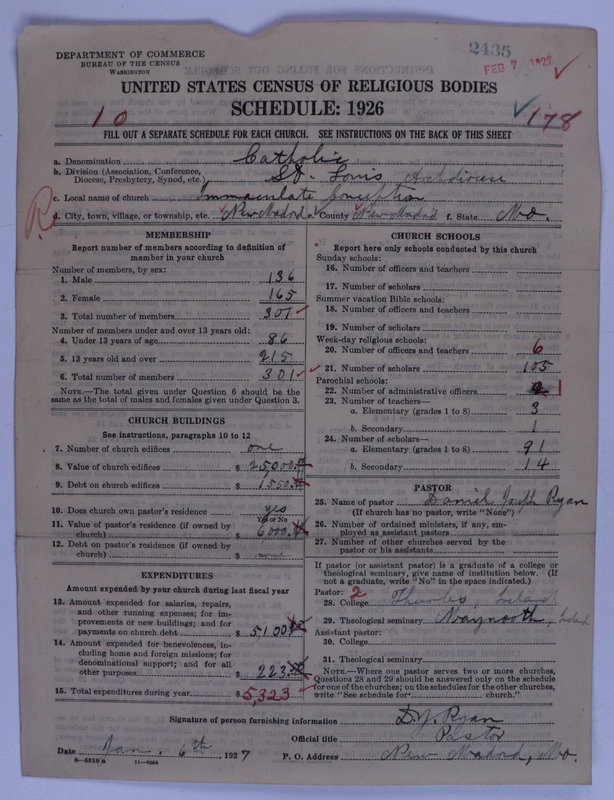 DEPARTMENT OF COMMERCE
BUREAU OF THE CENSUS
WASHINGTON
2435
FEB 7 1927
UNITED STATES CENSUS OF RELIGIOUS BODIES
SCHEDULE: 1926
10
178
FILL OUT A SEPARATE SCHEDULE FOR EACH CHURCH. SEE INSTRUCTIONS ON THE BACK OF THIS SHEET
a. Denomination Catholic
b. Division (Association, Conference, Diocese, Presbytery, Synod, etc.) St. Louis Archdiocese
c. Local name of church Immaculate Conception
d. City, town, village, or township, etc. New Madrid e. County New Madrid f. State Mo.
MEMBERSHIP
Report number of members according to definition of
member in your church
Number of members, by sex:
1. Male 136
2. Female 165
3. Total number of members 301
Number of members under and over 13 years old:
4. Under 13 years of age 86
5. 13 years old and over 215
6. Total number of members 301
NOTE.—The total given under Question 6 should be the
same as the total of males and females given under Question 3.
CHURCH BUILDINGS
See instructions, paragraphs 10 to 12
7. Number of church edifices one
8. Value of church edifices $ 25,000.00
9. Debt on church edifices $ 1550.00
10. Does church own pastor's residence yes
Yes or No
11. Value of pastor's residence (if owned by
church) $ 6000.00
12. Debt on pastor's residence (if owned by
church) $ none
EXPENDITURES
Amount expended by your church during last fiscal year
13. Amount expended for salaries, repairs,
and other running expenses; for im-
provements or new buildings; and for
payments on church debt $ 5100.00
14. Amount expended for benevolences, in-
cluding home and foreign missions; for
denominational support; and for all
other purposes $ 223.00
15. Total expenditures during year $ 5,323
CHURCH SCHOOLS
Report here only schools conducted by this church
Sunday schools:
16. Number of officers and teachers
17. Number of scholars
Summer vacation Bible schools:
18. Number of officers and teachers
19. Number of scholars
Week-day religious schools:
20. Number of officers and teachers 6
21. Number of scholars 105
Parochial schools:
22. Number of administrative officers 1
23. Number of teachers—
a. Elementary (grades 1 to 8) 3
b. Secondary 1
24. Number of scholars—
a. Elementary (grades 1 to 8) 91
b. Secondary 14
PASTOR
25. Name of pastor Daniel Joseph Ryan
(If church has no pastor, write "None")
26. Number of ordained ministers, if any, em-
ployed as assistant pastors
27. Number of other churches served by the
pastor or his assistants
If pastor (or assistant pastor) is a graduate of a college or
theological seminary, give name of institution below. (If
not a graduate, write "No" in the space indicated.)
Pastor: 2
28. College Thurles, Ireland
29. Theological seminary Maynooth, Ireland
Assistant pastor:
30. College
31. Theological seminary
NOTE.—Where one pastor serves two or more churches,
Questions 28 and 29 should be answered only on the schedule
for one of the churches; on the schedules for the other churches,
write "See schedule for church."
Signature of person furnishing information D. J. Ryan
Official title Pastor
Date Jan. 6th, 1927 P. O. Address New Madrid, Mo.
8-5518a 11-8064